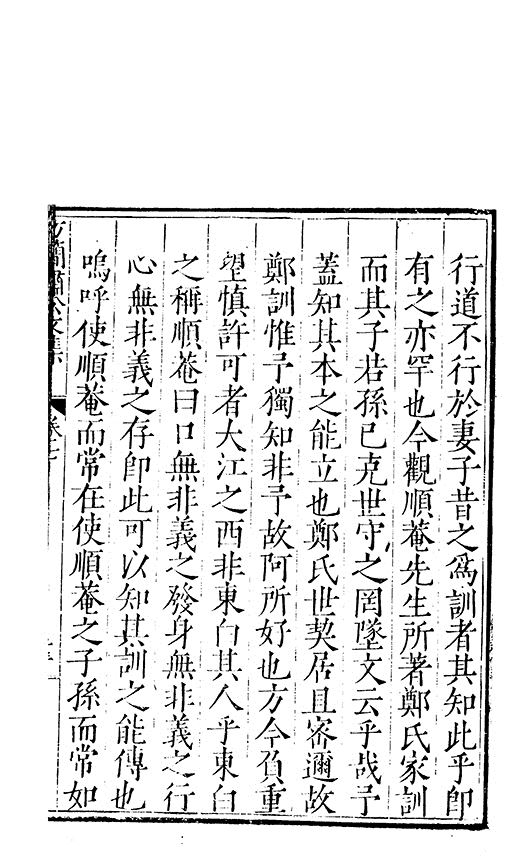 行道不行於妻子昔之爲訓者其知此乎卽
有之亦罕也今觀順菴先生所著鄭氏家訓
而其子若孫已克世守之罔墜文云乎哉予
蓋知其本之能立也鄭氏世契居且密邇故
鄭訓惟予獨知非予故阿所好也方今負重
望慎許可者大江之西非東白其人乎東白
之稱順菴曰口無非義之發身無非義之行
心無非義之存卽此可以知其訓之能傳也
嗚呼使順菴而常在使順菴之子孫而常如
方簡肅公文集 卷七